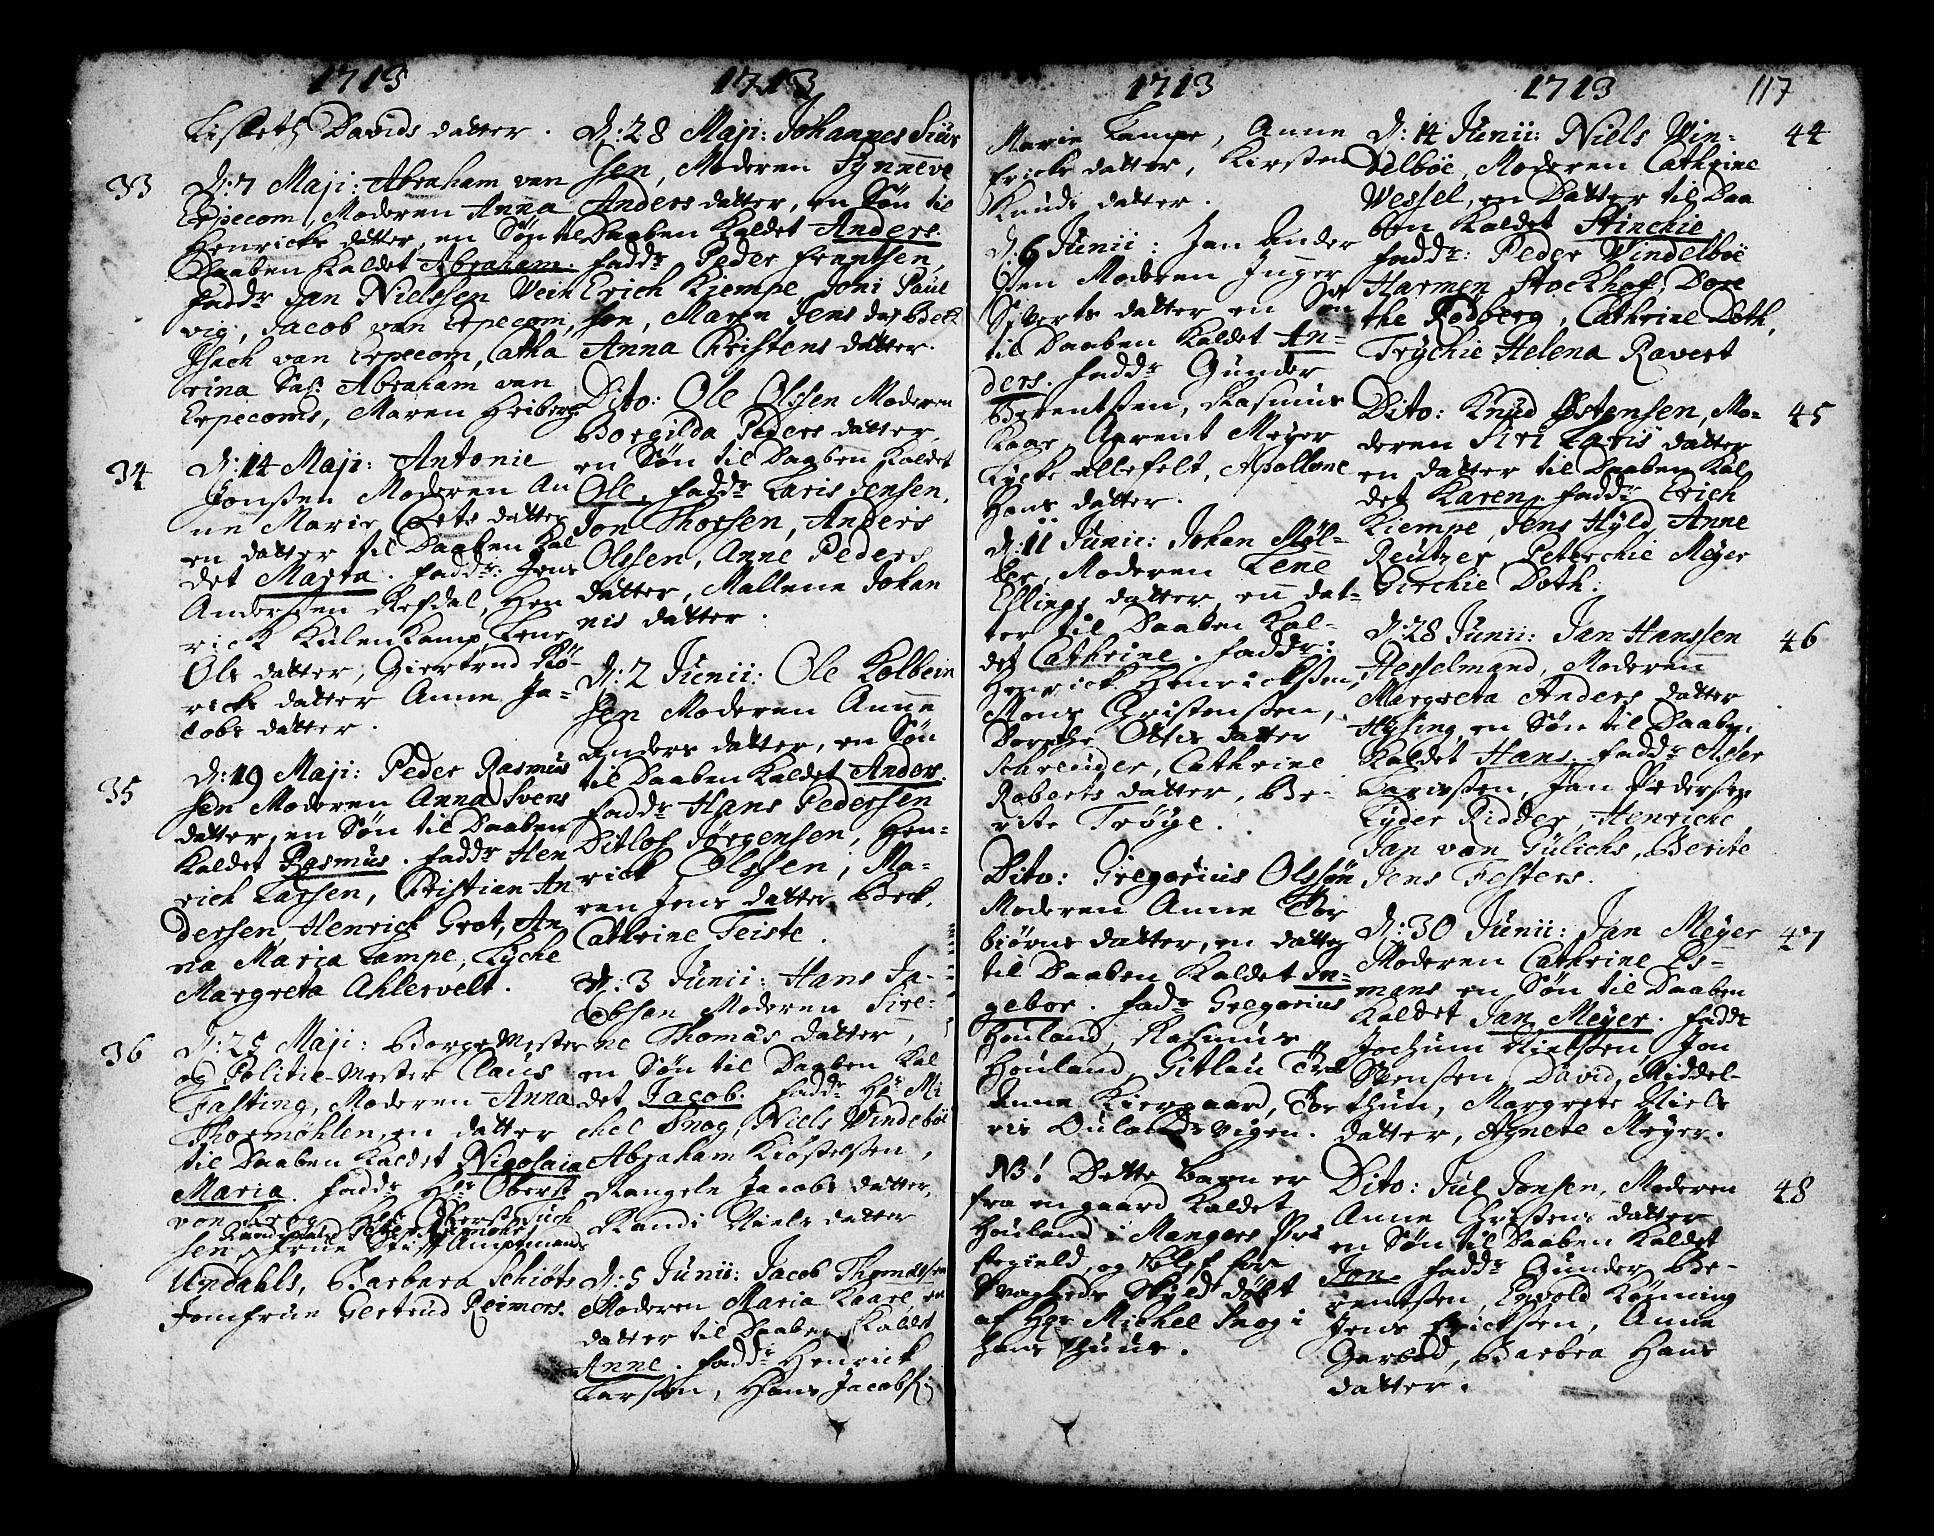 1713
Lisbeth Davids datter.
33
D: 7 Maji: Abraham van
Erpecom, Moderen Anna
Henrichs datter, en Søn til
Daaben Kaldet Abraham.
fadd:r Jan Nielssen Wein
vig, Jacob van Erpecom,
Isach van Erpecom, Catha
rina Sal: Abraham van
Erpecoms, Maren Heiberg
34
D: 14 Maji: Antonie
Jonssen Moderen An
ne Marie datter
en datter til Daaben Kal
det Marta. fadd:r: Jens
Anderssen Refdal, Hen
rick Kulenkamp, Lene
Ols datter, Giertrud
ricks datter Anne Ja-
cobs datter.
35
D: 19 Maji: Peder Rasmus
sen Moderen Anna Svens
datter, en Søn til Daaben
Kaldet Rasmus. fadd:r Hen
rich Larsen, Christian An
dersen, Henrick Grot, An
na Maria Lampe, Lyche
Margreta Ahlervelt.
36
D: 25 Maji: Borgemester
og Politie-Mester Claus
Fasting, Moderen Anna
Thormøhlen, en datter
til Daaben Kaldet Nicolaia
Maria. fadd:r H:r Oberst
von Krog,
sen, Frue Stift Ampmands
Undahls, Barbara Schiøts
Jomfrue Gertrud Reimers.
1713
D: 28 Maji: Johannes Siur
sen, Moderen Synneve
Anders datter, en Søn til
Daaben Kaldet Anders.
fadd:r Peder frantsen,
Erich Kiempe, Joni Paul
sen, Maren Jens dat: Beck
Anna Christens datter.
Dito: Ole Olssen Moderen
Borgilda Peders datter,
en Søn til Daaben Kaldet
Ole, fadd:r Laris Jensen,
Jon Thorsen, Anders
Olssen, Anne Peders
datter, Mallene Johan
nis datter.
D: 2 Junii: Ole Kolbein
sen Moderen Anne
Anders datter, en Søn
til Daaben Kaldet Anders.
fadd:r Hans Pedersen
Ditlof Jørgensen, Hen-
rick Olssen, Ma-
ren Jens datter Beck,
Cathrine Teiste.
D: 3 Junii: Hans Ja-
cobsen Moderen Sire-
ne Thomas datter,
en Søn til Daaben Kal
det Jacob. fadd:r H:r Mi
chel Snog, Niels Vindelbøe
Abraham Kiøstelssen,
Rangele Jacobs datter,
Randi Niels datter
D: 5 Junii: Jacob Thomassen
Moderen Maria Kaare, en
datter til Daaben Kaldet
Anne. fadd:r Henrick
Larssen, Hans Jacobs:
1713
Marie Lampe, Anne
Ericks datter, Kirsten
Knuds datter.
D: 6 Junii: Jan Ander
sen Moderen Inger
Siverts datter en Søn
til Daaben Kaldet An-
ders. fadd:r Gunder
Berentsen, Rasmus
Kaar, Aarent Meyer
Lycke Allefelt, Apollone
Hans datter.
D: 11 Junii: Johan Møl-
ler, Moderen Lene
Ellings datter, en dat-
ter til Daaben Kal-
det Cathrine. fadd:r:
Henrick Henrickssen,
Mons Christenssen,
Dorthe Ottis datter
Schreuder, Cathrine
Roberts datter, Be-
rite Trøye.
Dito: Gregorius Olssøn
Moderen Anne Tor
biørns datter, en datter
til Daaben Kaldet In-
gebor. fadd:r Gregorius
Houland, Rasmus
Houland, Gitlau
Anne Kiergaard, Tor
ris Oulandsvigen.
NB! Dette Barn er
fra en gaard Kaldet
Houland i Mangers Præ
stegield, og blef for
svagheds Skyld døbt
af H:r Michel Snog i
Hans Huus.
1713
117
44
D: 14 Junii: Niels Vin-
delbøe, Moderen Cathrine
Vessel, en Datter til Daa
ben Kaldet Stinchie.
fadd:r: Peder Vindelbøe
Harmen Stockhof, Dore
the Rødberg, Cathrine Doth,
Trychie Helena Ravert
45
Dito: Knud Østensen, Mo-
deren Siri Laris datter
en datter til Daaben Kal
det Karen. fadd:r Erich
Kiempe, Jens Hyld, Anne
Reutzer, Peterchie Meyer
Girchie Doth.
46
D: 28 Junii: Jan Hanssen
Hesselmand, Moderen
Margreta Anders datter
Hysing, en Søn til Daaben
Kaldet Hans. fadd:r Asser
Larssen, Jan Pedersen
Lyder Ridder, Henriche
Jan van Gülichs, Berite
Jens Festers.
47
D: 30 Junii: Jan Meyer
Moderen Cathrine Es-
mans en Søn til Daaben
Kaldet Jan Meyer. fadd:r
Jochum Nielssen, Jon
Svenssen, David Middel-
thun, Margrete Niels
datter, Agnete Meyer.
48
Dito: Jul Jonsen, Moderen
Anne Christens datter
en Søn til Daaben Kaldet
Jon. fadd:r Gunder Be-
rentsen, Envold Kønning
Jens Erickssen, Anne
Garbod, Barbra Hans
datter.